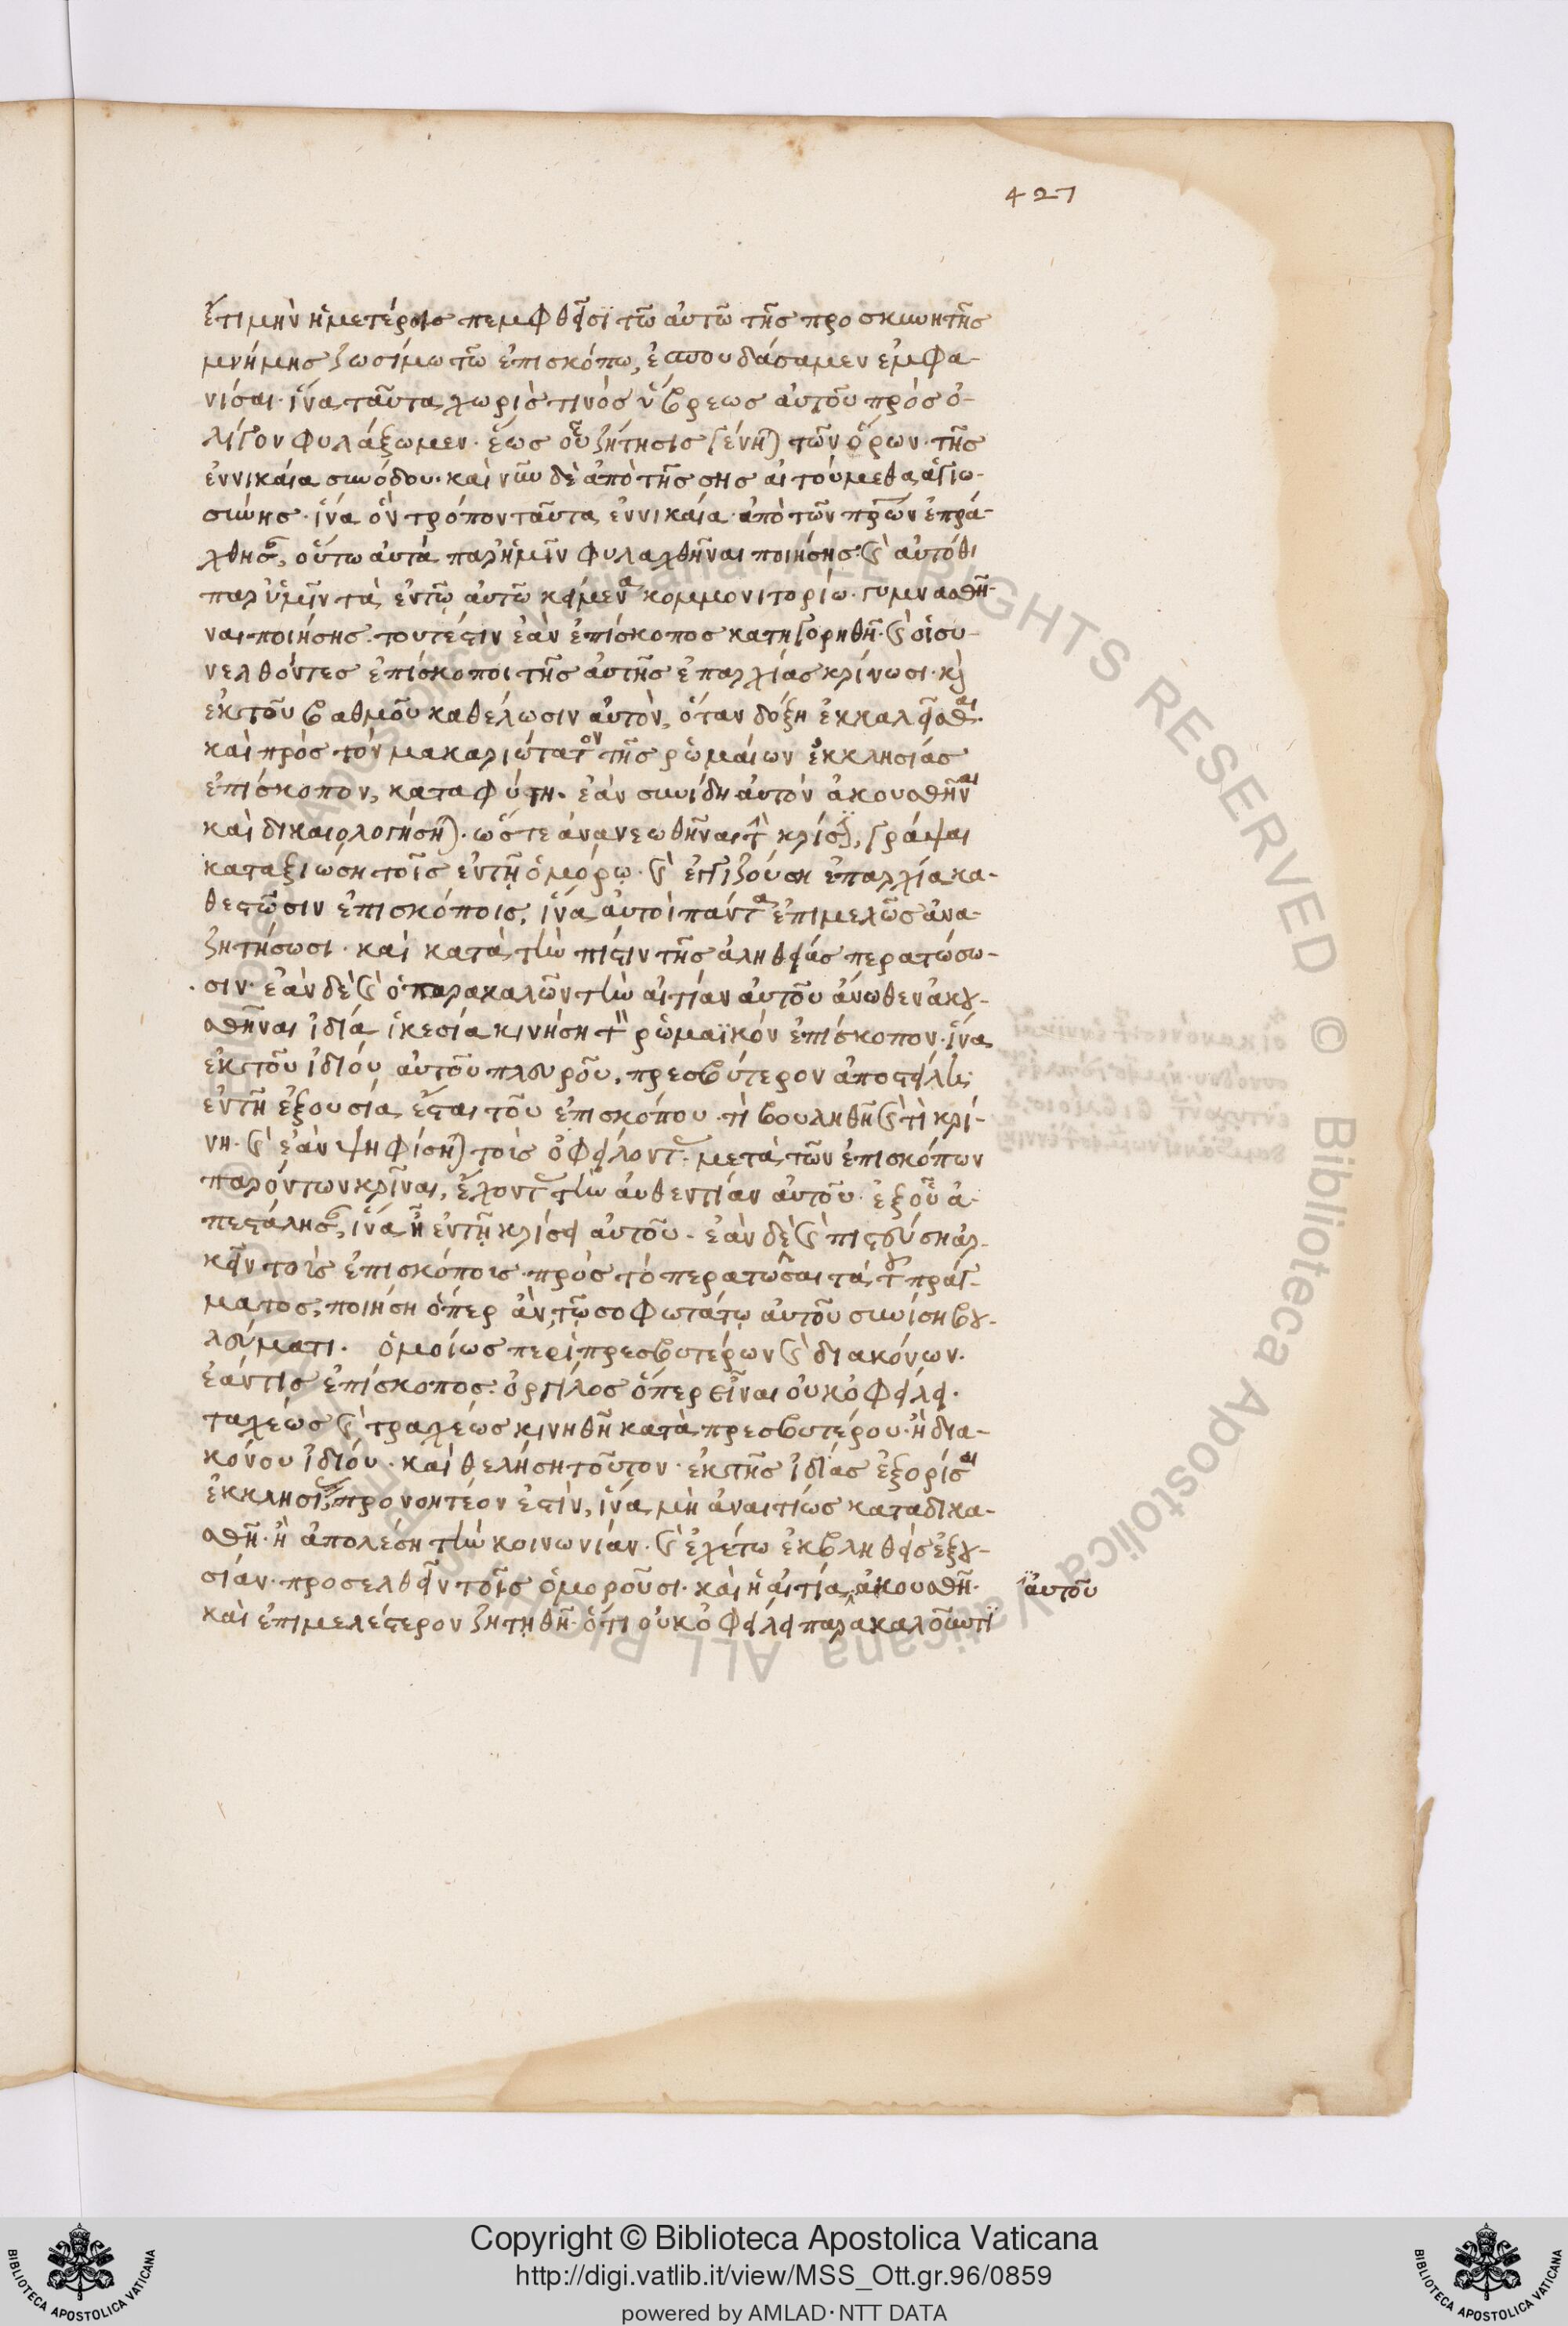 427
ἔτι μὴν ἡμετέροις πεμφθεῖσι τῶ αὐτῶ τῆς προσκυνητῆς
μνήμης ζωσίμω τῶ ἐπισκόπω, ἐσπουδάσαμεν ἐμφα-
νίσαι· ἵνα ταῦτα χωρὶς τινὸς ὕβρεως αὐτοῦ πρὸς ὀ-
λίγον φυλάξωμεν· ἕως οὗ ζήτησις γένηται τῶν ὅρων· τῆς
ἐν νικαία συνόδου· καὶ νῦν δὲ ἀπὸ τῆς σῆς αἰτούμεθα ἁγιω-
σύνης· ἵνα ὃν τρόπον ταῦτα ἐν νικαία· ἀπὸ τῶν πρων ἐπρά-
χθησαν, οὕτω αὐτὰ παρ' ἡμῖν φυλαχθῆναι ποιήσης· καὶ αὐτόθι
παρ' ὑμῖν τὰ ἐν τῶ αὐτῶ κείμενα κομμονιτορίω· γυμνασθῆ-
ναι ποιήσης· τουτέστιν ἐὰν ἐπίσκοπος κατηγορηθῆ· καὶ οἱ συ-
νελθόντες ἐπίσκοποι τῆς αὐτῆς ἐπαρχίας κρίνωσι· καὶ
ἐκ τοῦ βαθμοῦ καθέλωσιν αὐτὸν, ὅταν δόξη ἐκκαλεῖσθαι·
καὶ πρὸς τὸν μακαριώτατον τῆς ῥωμαίων ἐκκλησίας
ἐπίσκοπον, καταφύγη· ἐὰν συνίδη αὐτὸν ἀκουσθῆναι
καὶ δικαιολογήσηται· ὥστε ἀνανεωθῆναι τὴν κρίσιν, γράψαι
καταξιώση τοῖς ἐν τῇ ὁμόρῳ· καὶ ἐγγιζούση ἐπαρχία κα-
θεστῶσιν ἐπισκόποις, ἵνα αὐτοὶ πάντα ἐπιμελῶς ἀνα-
ζητήσωσι· καὶ κατὰ τὴν πίστιν τῆς ἀληθείας περατώσω-
σιν· ἐὰν δὲ καὶ ὁ παρακαλῶν τὴν αἰτίαν αὐτοῦ ἄνωθεν ἀκου-
σθῆναι ἰδία ἱκεσία κινήση τὸν ῥωμαϊκὸν ἐπίσκοπον· ἵνα
ἐκ τοῦ ἰδίου αὐτοῦ πλευροῦ, πρεσβύτερον ἀποστείλη·
ἐν τῇ ἐξουσία ἔσται τοῦ ἐπισκόπου· τὶ βουληθῆ καὶ τὶ κρί-
νη· καὶ ἐὰν ψηφίσηται τοὺς ὀφείλοντας μετὰ τῶν ἐπισκόπων
παρόντων κρῖναι, ἔχοντας τὴν αὐθεντίαν αὐτοῦ· ἐξ οὗ ἀ-
πεστάλησαν, ἵνα ἦ ἐν τῇ κρίσει αὐτοῦ· ἐὰν δὲ καὶ πιστεύση ἀρ-
κεῖν τοὺς ἐπισκόπους πρὸς τὸ περατῶσαι τὰ τοῦ πράγ-
ματος, ποιήση ὅπερ ἂν τῷ σοφωτάτῳ αὐτοῦ συνίση βου-
λεύματι· ὁμοίως περὶ πρεσβυτέρων καὶ διακόνων·
ἐάν τις ἐπίσκοπος ὀργίλος ὅπερ εἶναι οὐκ ὀφείλει·
ταχέως καὶ τραχέως κινηθῆ κατὰ πρεσβυτέρου· ἢ δια-
κόνου ἰδίου· καὶ θελήση τοῦτον ἐκ τῆς ἰδίας ἐξορίσαι
ἐκκλησίας, προνοητέον ἐστὶν, ἵνα μὴ ἀναιτίως καταδικα-
σθῆ· ἢ ἀπολέση τὴν κοινωνίαν· καὶ ἐχέτω ἐκβληθεὶς ἐξου-
σίαν· προσελθεῖν τοῖς ὁμοροῦσι· καὶ ἡ αἰτία ἀκουσθῆ· αὐτοῦ
καὶ ἐπιμελέστερον ζητηθῆ· ὅτι οὐκ ὀφείλει παρακαλοῦντι